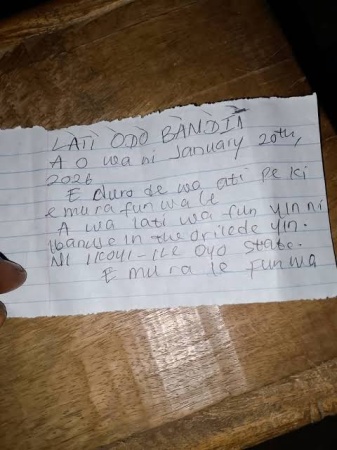 LATI ODO BANDIT
A O wa ni January 20th,
2026
E duro de wa ati pe ki
e mura fun wa le
A wa lati wa fun yin ni
Ibanuje in the orilede yin.
NI IKOYI-ILE OYO State.
E mura le funwa